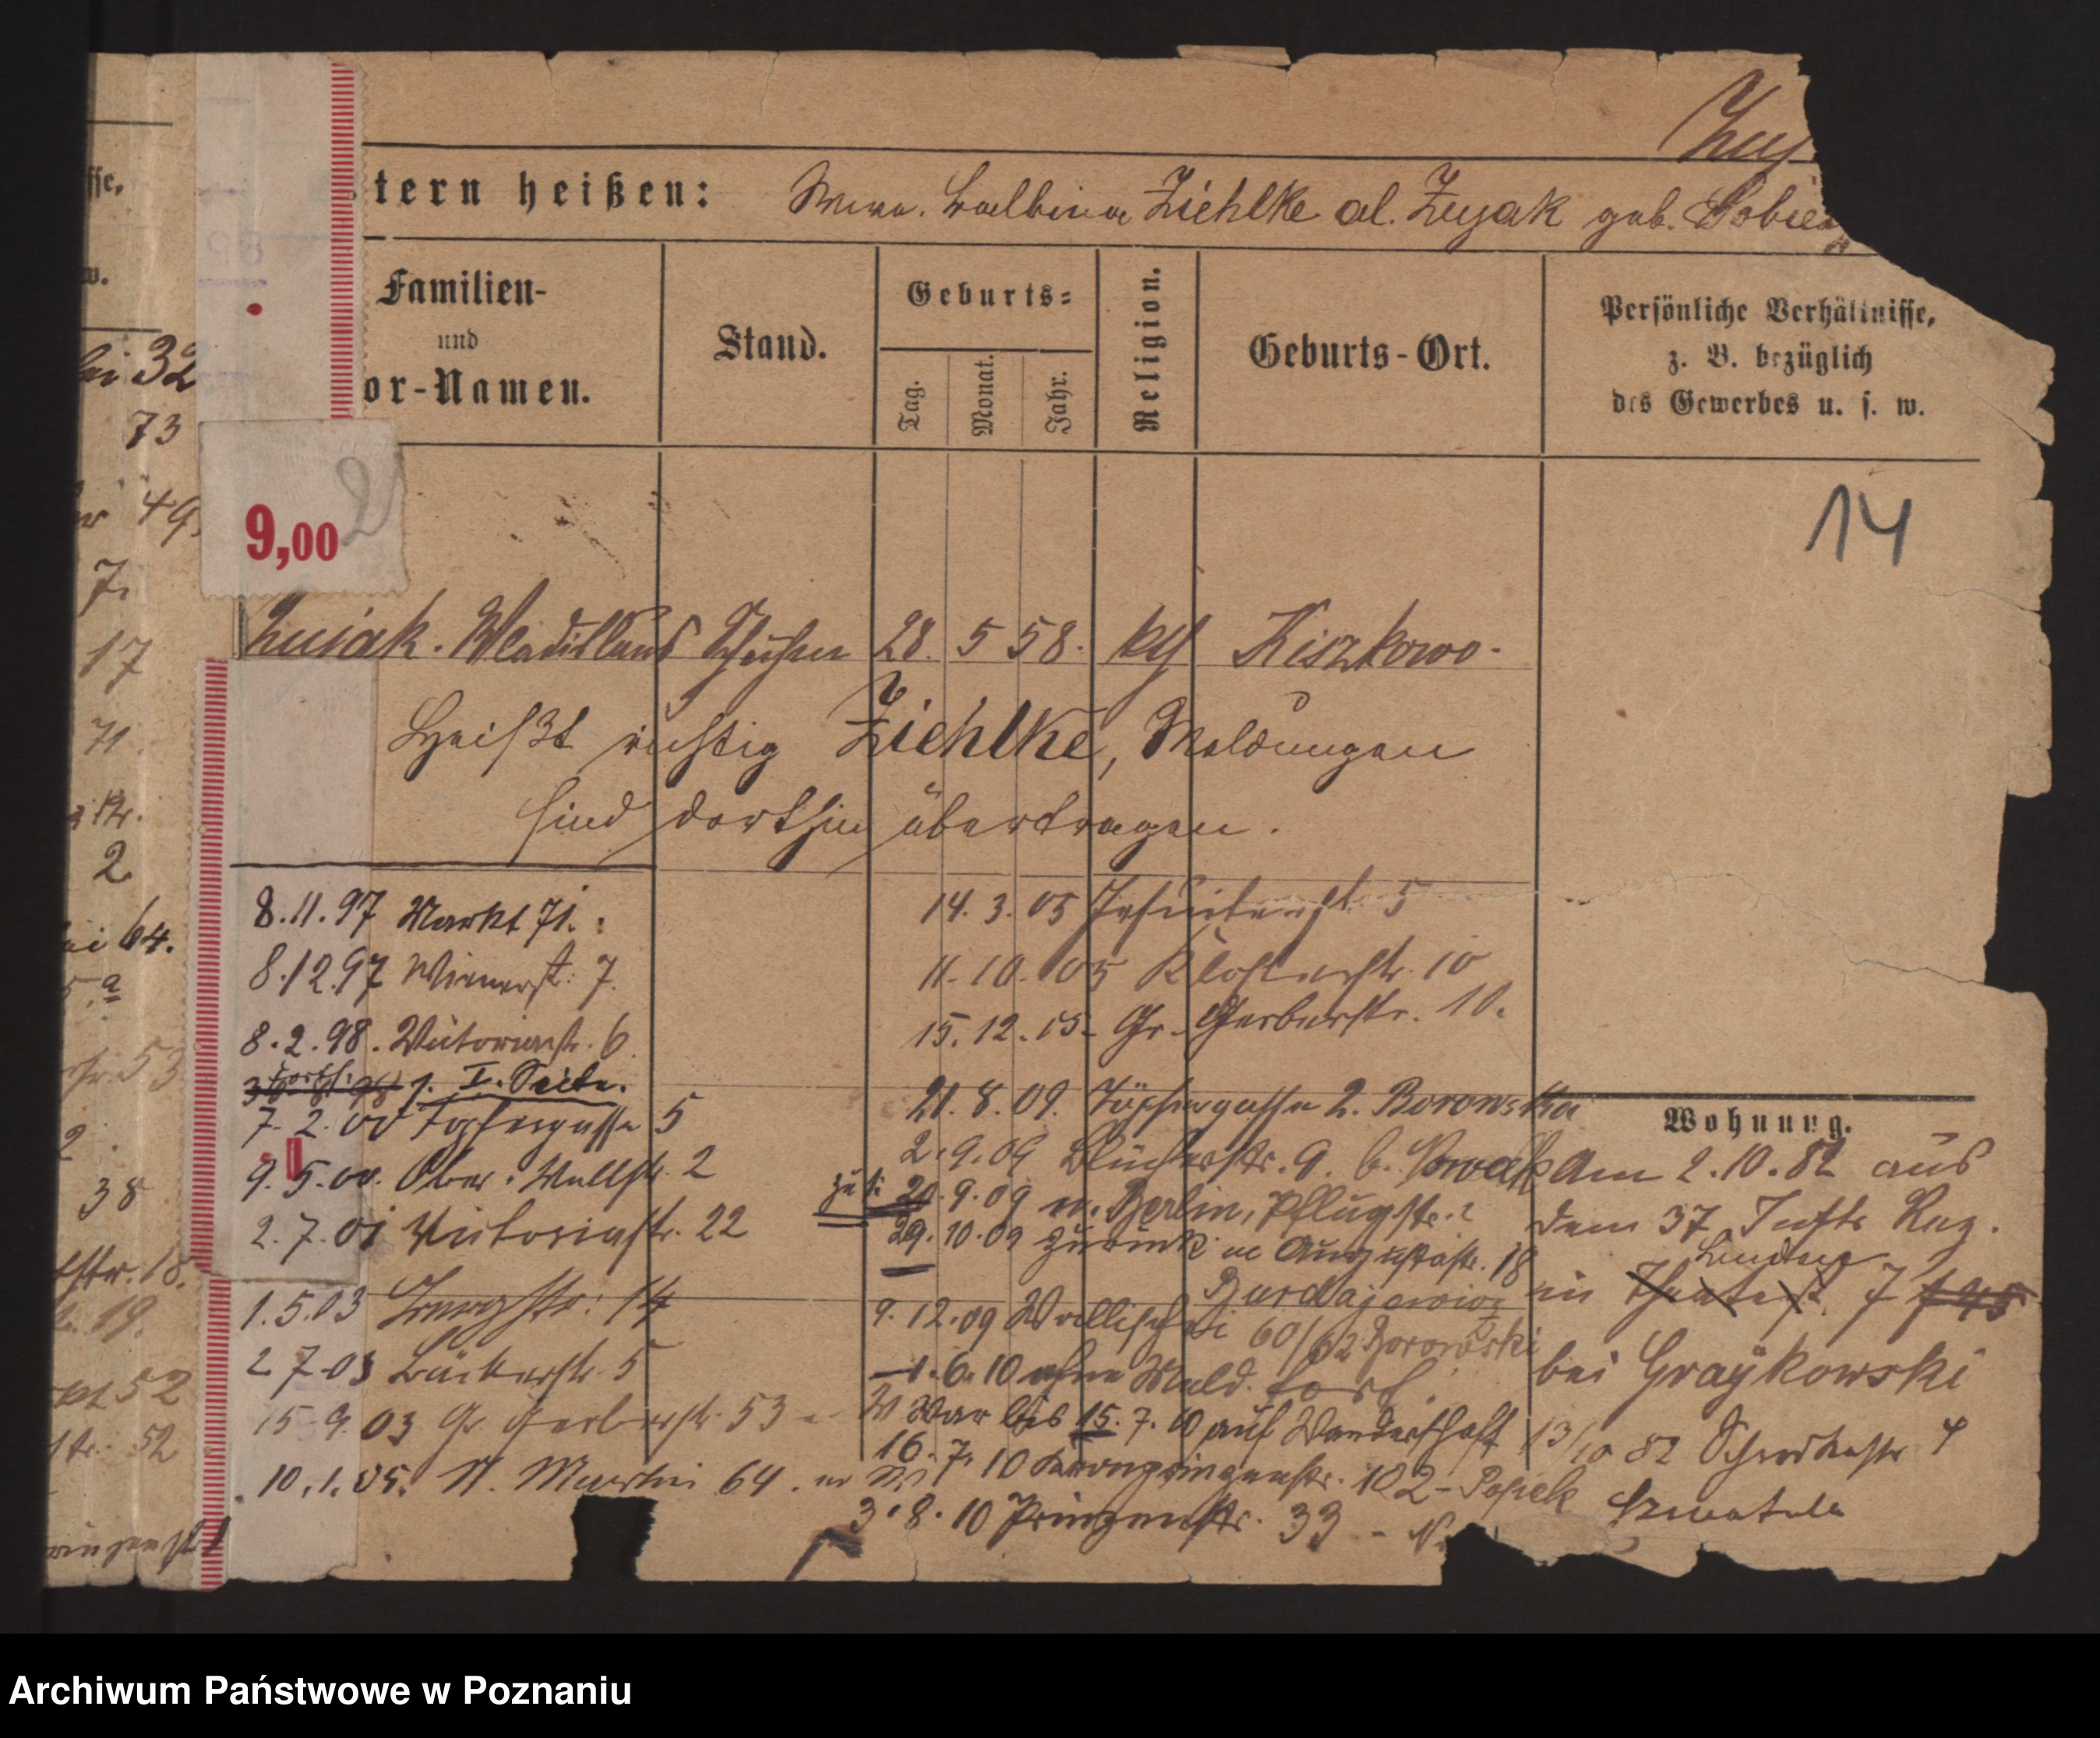 Zuj
tern heißen: Wwe. Balbina Ziehlke al. Zuyak geb. Sobie
Familien-
und
or-Namen.
Stand.
Geburts-
Tag.
Monat.
Jahr.
Religion.
Geburts-Ort.
Persönliche Verhältnisse,
z. B. bezüglich
des Gewerbes u. s. w.
sse,
w.
14
9,00
2
Zuiak. Wladislaus 28. 5 58. kth Kiszkowo.
Heißt richtig Ziehlke, Meldungen
sind dorthin übertragen.
8.11.97 Markt 71.
8.12.97 Wienerst. 7.
8.2.98. Victoriastr. 6.
Forts. s. I. Seite.
7.2.00 Töpfergasse 5
9.5.00. Ober. Wallstr. 2
2.7.01 Victoriastr. 22
1.5.03 Langstr. 14
2 7.03 Bäckerstr. 5
15.9.03 Gr. Gerberstr. 53
10.1.05. St. Martin 64.
14.3.05 Jesuitenstr. 5
11.10.05 Klosterstr. 10
15.12.05. Gr. Gerberstr. 10.
21.8.09. Töpfergasse 2. Borowska
2.9.09 Blücherstr. 9. b. Nowak
20.9.09 n. Berlin, Pflugstr. 2
29.10.09 zurück n Augustastr. 18
Burdajewicz
9.12.09 Wallischei 60/62 Borowski
1.6.10 ohne Meld. fort.
War bis 15.7.10 auf Wanderschaft
16.7.10 Kronprinzenstr. 102 -
3.8.10 Prinzenstr. 33 -
Wohnung.
Am 2.10.82 aus
dem 37 Inftr Reg.
in 7
bei Graÿkowski
13/10 82 Schrodkastr 4
38
73
49
7.
17
71.
2
64.
53
38
18.
19.
52
52
Archiwum Państwowe w Poznaniu